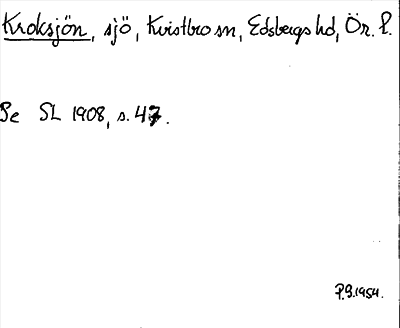 Kroksjön, sjö, Kvistbro sn, Edsbergs hd, Ör. l.
Se SL 1908, s. 47.
P.G. 1954.